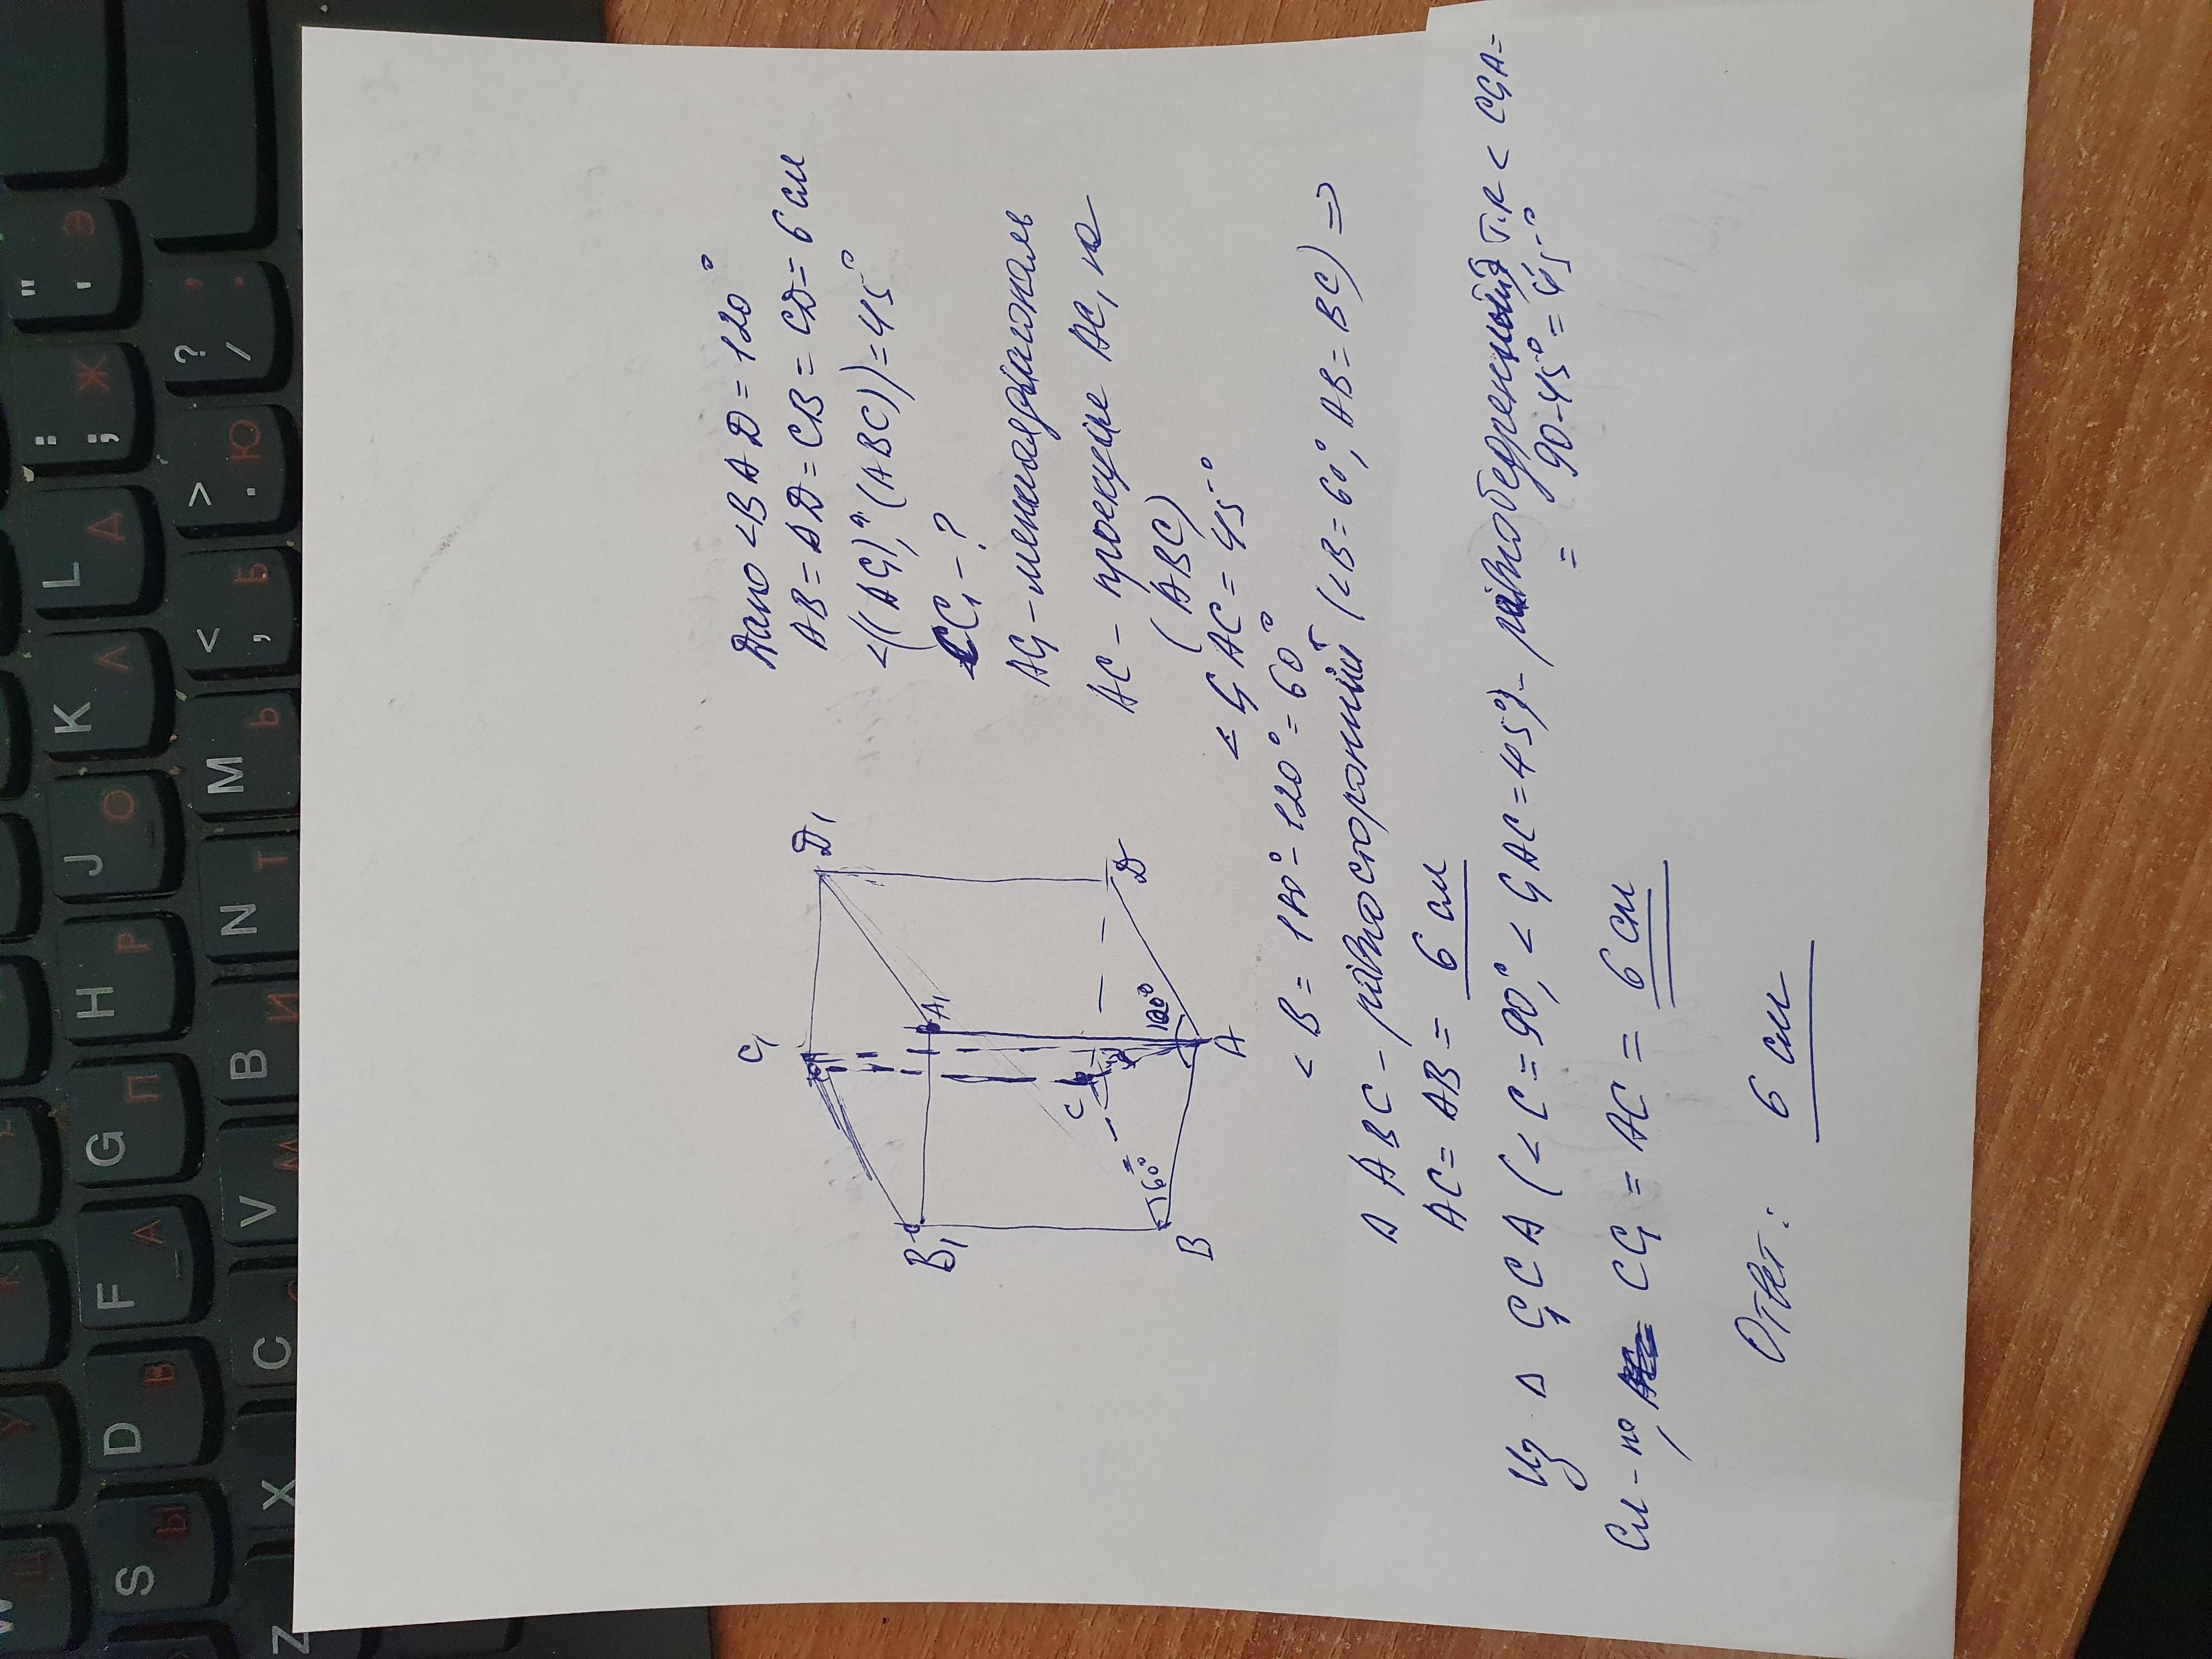 Дано <BAD=120°
AB=AD=CB=CD=6см
<((AC₁),^(ABC))=45°
CC₁-?
AC₁-меншая діагональ
AC- проекция AC₁ на
(ABC)
<C₁AC=45°
<B=180°-120°=60°
Δ ABC- рівносторонній (<B=60°, AB=BC) =>
AC=AB= 6 см
Из Δ C₁CA (<C=90°, <C₁AC=45°)- рівнобедренный т.к < CC₁A=
= 90-45°=45°
CC₁=AC= 6 см
Ответ: 6 см
C₁
D₁
B₁
A₁
C
D
B
A
60°
120°
" ' Э
: ; Ж
? /
L Д
> . Ю
K Л
< , Б
J О
M Ь
H Р
N Т
G П
B И
F А
V М
D В
C С
S Ы
X
Z
W